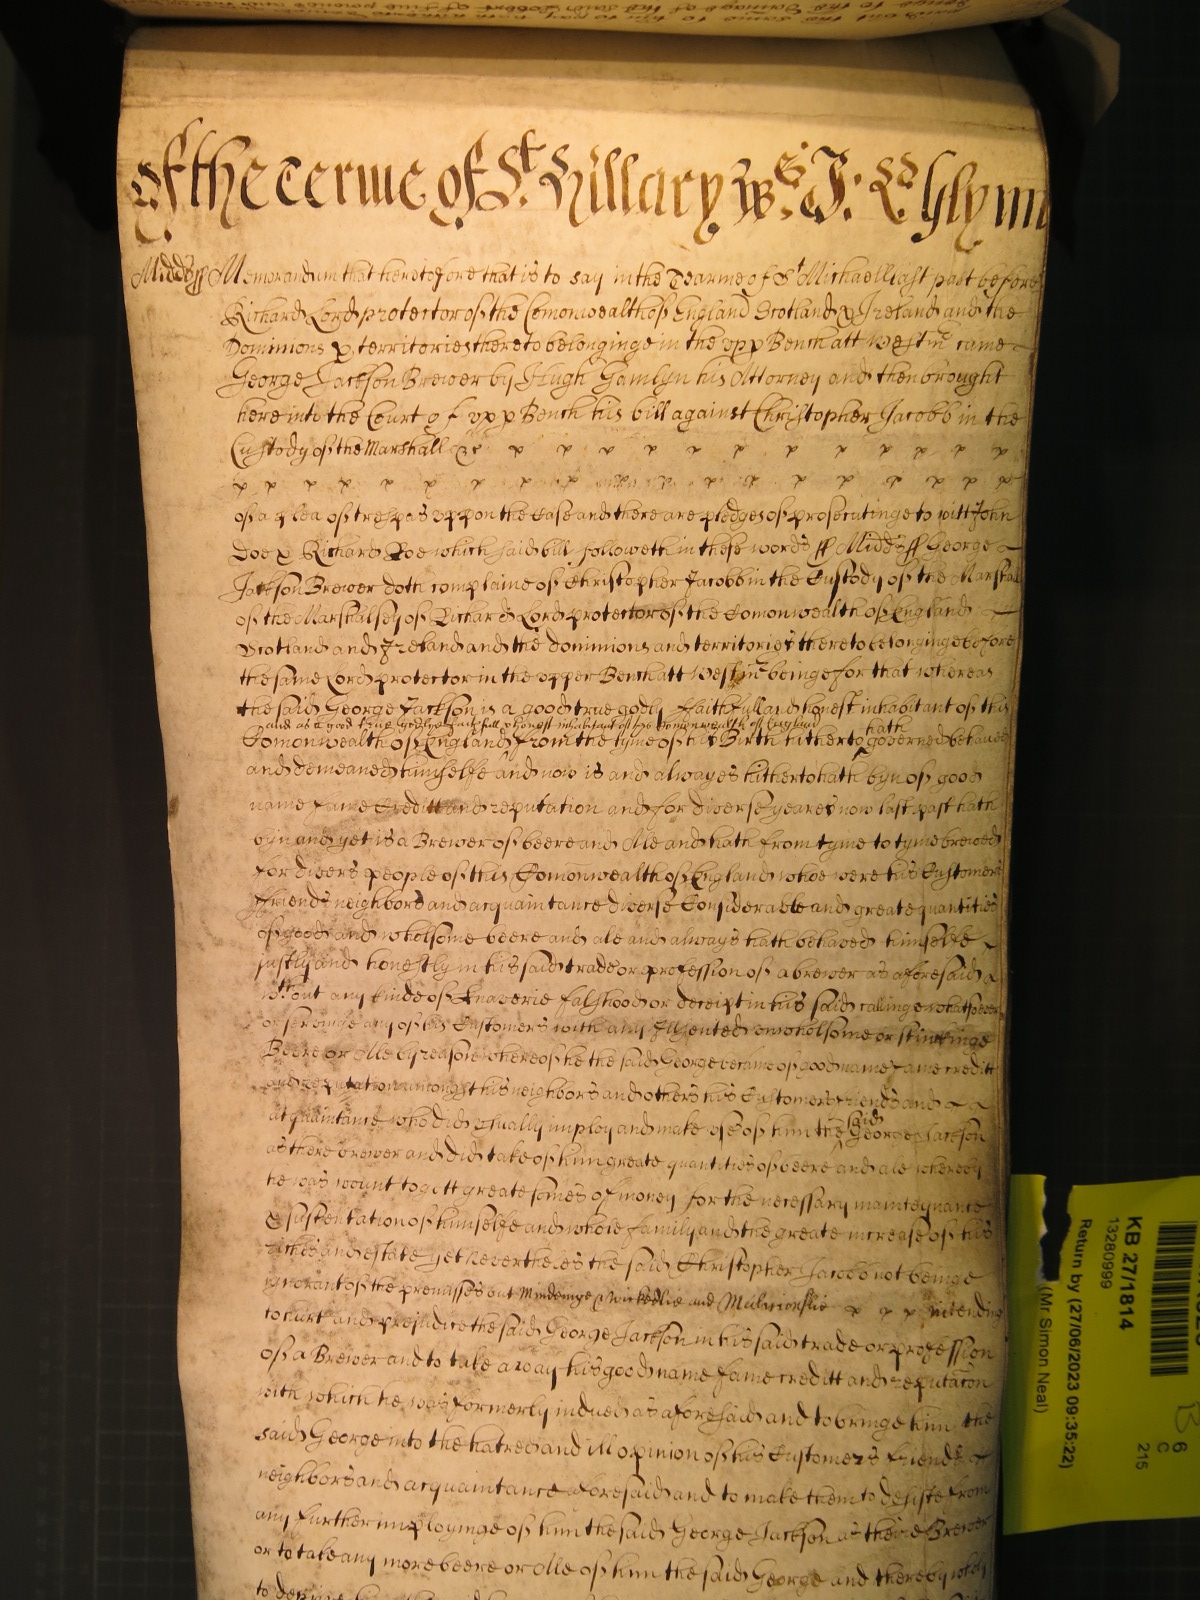 Of the Terme of St. Hillary 1658 J. Ro. Glynn
Midds ss Memorandum that heretofore that is to say in the Tearme of St Michaell last past before
Richard Lord protector of the Comonwealth of England Scotland & Ireland and the
Dominions & territories thereto belonginge in the upp Bench att Westmr came
George Jackson Brewer by Hugh Gamlyn his Attorney and then brought
here into the Court of upp Bench his bill against Christopher Jacobb in the
Custody of the Marshall &c
of a plea of trespas uppon the Case and there are pledges of prosecutinge to witt John
Doe & Richard Roe which said bill followeth in these words ss Midds ss George
Jackson Brewer doth complaine of Christopher Jacobb in the Custody of the Marshal
of the Marshalsey of Richard Lord protector of the Comonwealth of England
Scotland and Ireland and the dominions and territories thereto belonginge before
the same Lord protector in the upper Bench att Westmr beinge for that whereas
the said George Jackson is a good true godly faithfull and honest inhabitant of this
and as a good true godlye faithfull & honest inhabitant of this Comonwealth of England hath
Comonwealth of England from the tyme of his Birth hitherto governed behaved
and demeaned himselfe and now is and always hitherto hath byn of good
name fame Creditt and reputation and for diverse yeares now last past hath
byn and yet is a Brewer of beere and Ale and hath from tyme to tyme brewed
for divers people of this Comonwealth of England whoe were his Customers
ffriends neighbors and acquaintance diverse Considerable and greate quantities
of good and wholsome beere and ale and always hath behaved himselfe
justly and honestly in his said trade or profession of a brewer as aforesaid
wthout any kinde of knaverie falshood or deceipt in his said callinge whatsoever
or servinge any of his Customers with any unwholsome or stinkinge
Beere or Alle by reason whereof he the said George became of good name fame creditt
and reputation amongst his neighbors and others his Customers friends and
acquaintance who did usually imploy and make use of him the said George Jackson
as there brewer and did take of him greate quantities of beere and ale whereby
he was wount to gett greate somes of money for the necessary mainteynance
& sustentation of himselfe and whole family and the greate increase of his
riches and estate Yet Nevertheles the said Christopher Jacobb not beinge
ignorant of the premisses but Mindeinge & wickedlie and Malitiouslie intendinge
to hurt and prejudice the said George Jackson in his said trade or profession
of a Brewer and to take away his good name fame creditt and reputacon
with which he was formerly indued as aforesaid and to bringe him the
said George into the hatred and ill opinion of his Customers friends
neighbors and acquaintance aforesaid and to make them to desiste from
any further imployinge of him the said George Jackson as theire Brewer
or to take any more beere or Alle of him the said George and thereby wholy
KB 27/1814
13280999
Return by (27/06/2023 09:35:22)
(Mr Simon Neal)
6
C
215